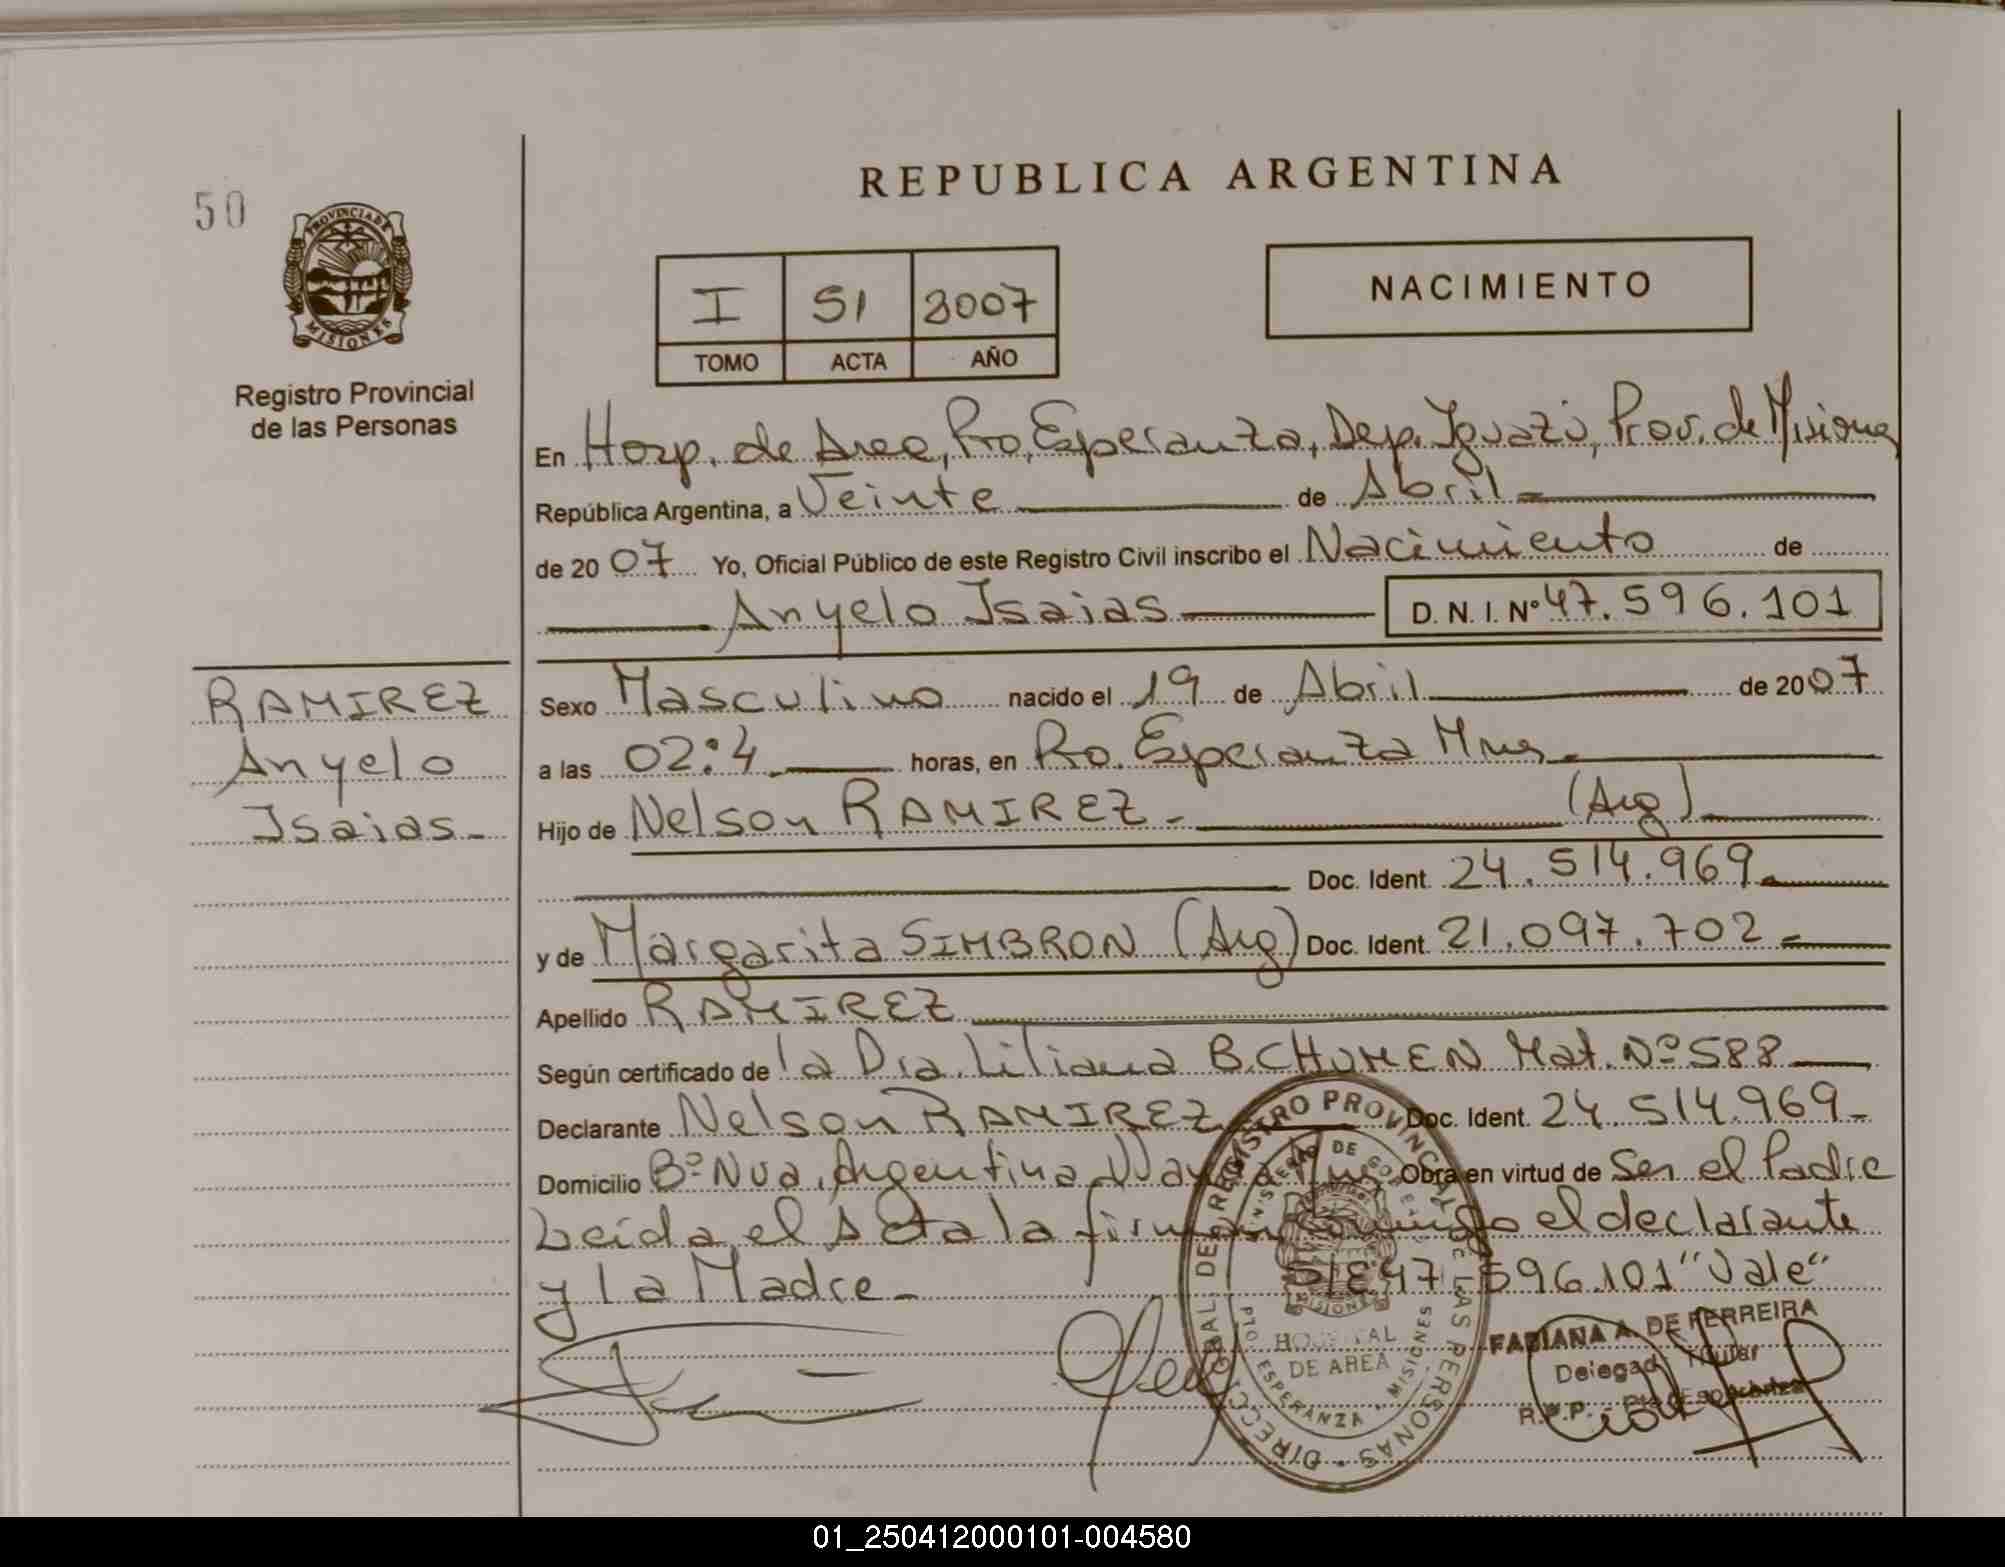 REPUBLICA ARGENTINA
50
PROVINCIA DE
MISIONES
Registro Provincial
de las Personas
I 51 2007
TOMO ACTA AÑO
NACIMIENTO
En Hosp. de Area, Pto. Esperanza, Dep. Iguazú, Prov. de Misiones
República Argentina, a Veinte de Abril
de 2007 Yo, Oficial Público de este Registro Civil inscribo el Nacimiento de
Anyelo Isaias D. N. I. Nº 47.596.101
RAMIREZ
Anyelo
Isaias
Sexo Masculino nacido el 19 de Abril de 2007
a las 02:4 horas, en Pto. Esperanza Mnes
Hijo de Nelson RAMIREZ (Arg)
Doc. Ident. 24.514.969
y de Margarita SIMBRON (Arg) Doc. Ident. 21.097.702
Apellido RAMIREZ
Según certificado de la Dra. Liliana B. CHUMEN Mat. Nº 588
Declarante Nelson RAMIREZ Doc. Ident. 24.514.969
Domicilio Bº Nva. Argentina Obra en virtud de Ser el Padre
Leida el Acta la firman conmigo el declarante
y la Madre S/E 47.596.101 "Vale"
DIRECCION GRAL. DEL REGISTRO PROVINCIAL DE LAS PERSONAS
MINISTERIO DE GOBIERNO
MISIONES
HOSPITAL
DE AREA
PTO. ESPERANZA - MISIONES
FABIANA A. DE FERREIRA
Delegada Titular
R.P.P. - Pto. Esperanza
01_250412000101-004580